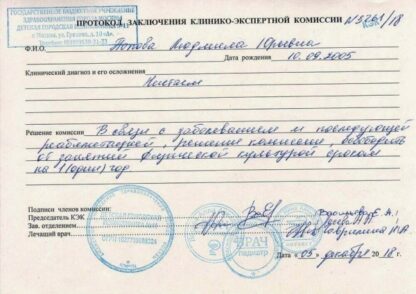 ГОСУДАРСТВЕННОЕ БЮДЖЕТНОЕ УЧРЕЖДЕНИЕ
ЗДРАВООХРАНЕНИЯ ГОРОДА МОСКВЫ
ДЕТСКАЯ ГОРОДСКАЯ
ПРОТОКОЛ ЗАКЛЮЧЕНИЯ КЛИНИКО-ЭКСПЕРТНОЙ КОМИССИИ №5261/18
Ф.И.О. Попова Людмила Юрьевна
Дата рождения 10.09.2005
Клинический диагноз и его осложнения
Решение комиссии В связи с заболеванием и последующей
реабилитацией, решение комиссии, освободить
от занятий физической культурой сроком
на 1 (один) год.
Подписи членов комиссии:
Председатель КЭК
Зав. отделением
Лечащий врач.
ВРАЧ
педиатр
Дата «03» декабря 2018 г.